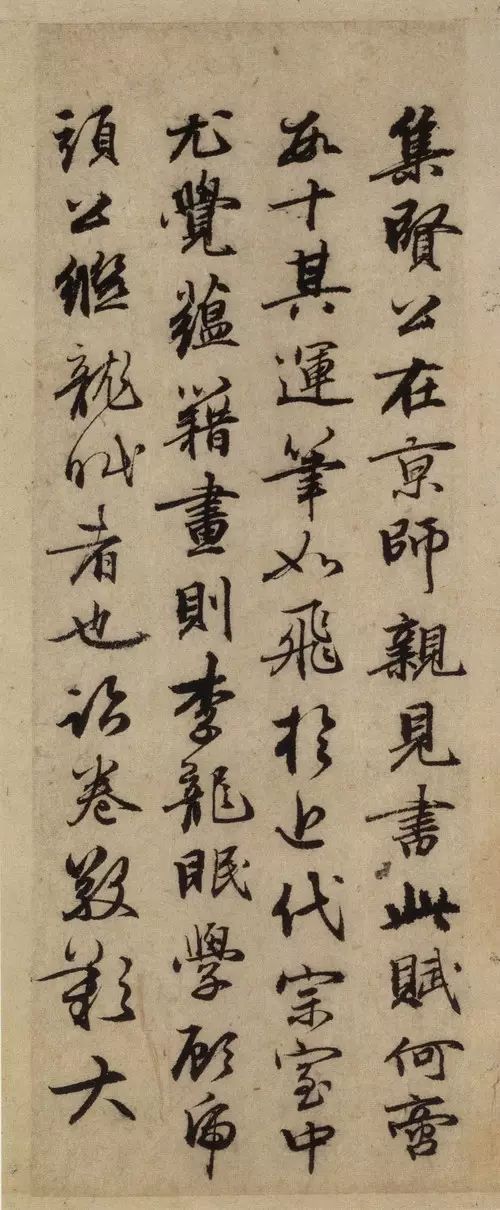 集賢公在京師親見書此賦何啻
數十其運筆如飛於近代宗室中
尤覺蘊籍畫則李龍眠學顧虎
頭公繼龍眠者也詠卷敬歎大